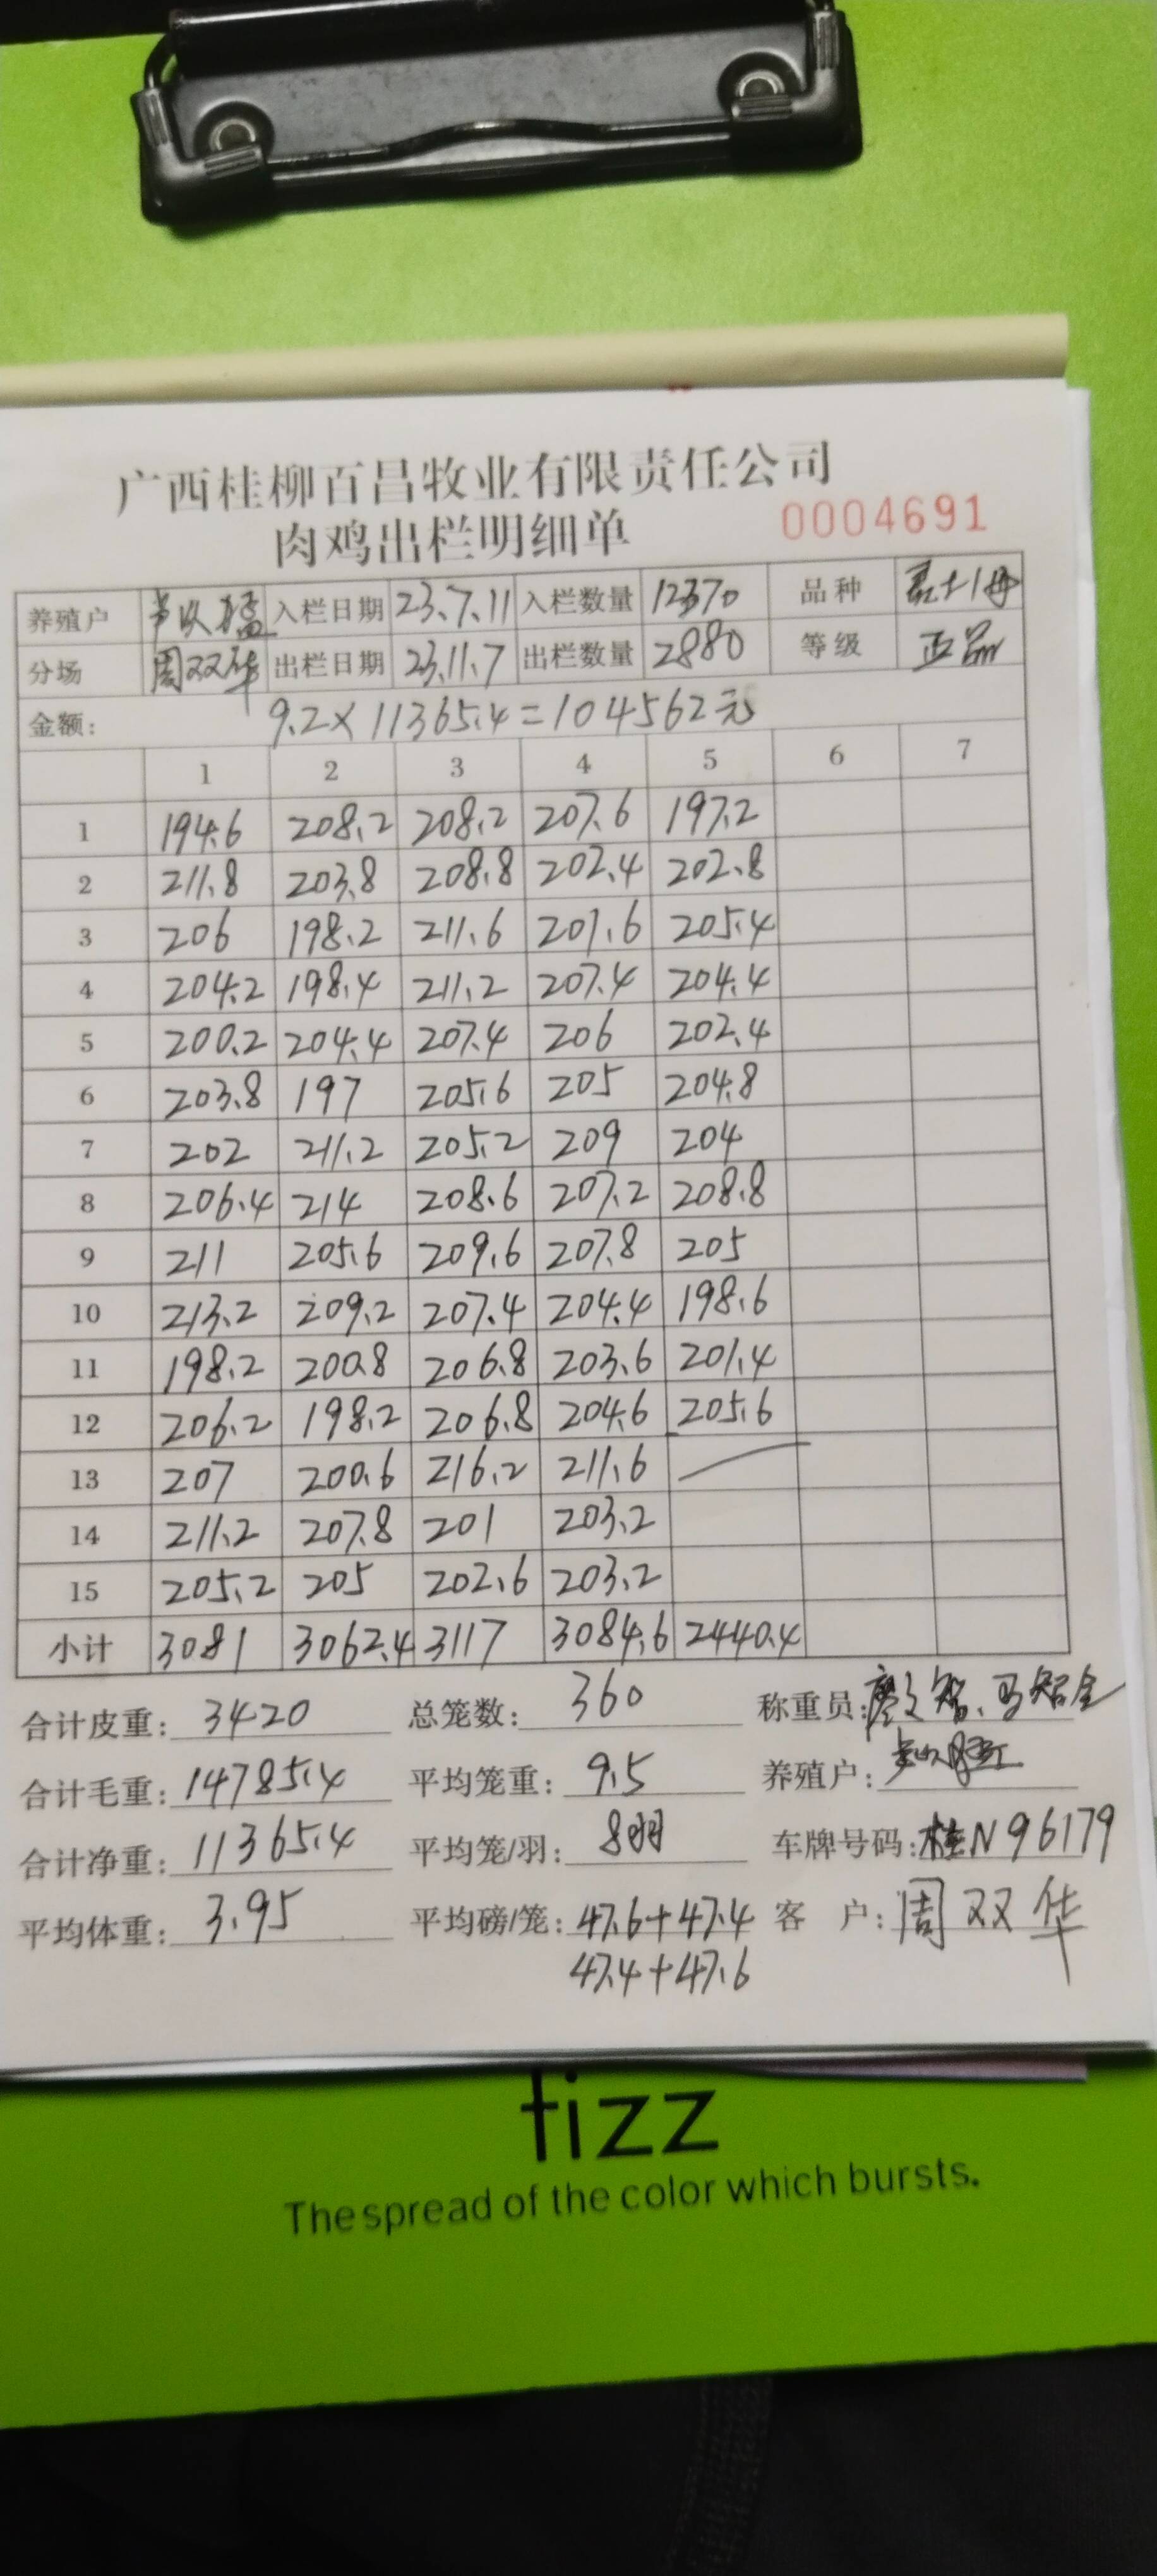 广西桂柳百昌牧业有限责任公司
肉鸡出栏明细单 0004691
养殖户 入栏日期 23.7.11 入栏数量 12370 品种
分场 周双华 出栏日期 23.11.7 出栏数量 2880 等级 正品
金额: 9.2×11365.4=104562元
1 2 3 4 5 6 7
1 194.6 208.2 208.2 207.6 197.2
2 211.8 203.8 208.8 202.4 202.8
3 206 198.2 211.6 201.6 205.4
4 204.2 198.4 211.2 207.4 204.4
5 200.2 204.4 207.4 206 202.4
6 203.8 197 205.6 205 204.8
7 202 211.2 205.2 209 204
8 206.4 214 208.6 207.2 208.8
9 211 205.6 209.6 207.8 205
10 213.2 209.2 207.4 204.4 198.6
11 198.2 200.8 206.8 203.6 201.4
12 206.2 198.2 206.8 204.6 205.6
13 207 200.6 216.2 211.6
14 211.2 207.8 201 203.2
15 205.2 205 202.6 203.2
小计 3081 3062.4 3117 3084.6 2440.4
合计皮重: 3420 总笼数: 360 称重员:
合计毛重: 14785.4 平均笼重: 9.5 养殖户:
合计净重: 11365.4 平均笼/羽: 8羽 车牌号码: 桂N96179
平均体重: 3.95 平均磅/笼: 47.6+47.4 客 户: 周双华
47.4+47.6
fizz
The spread of the color which bursts.